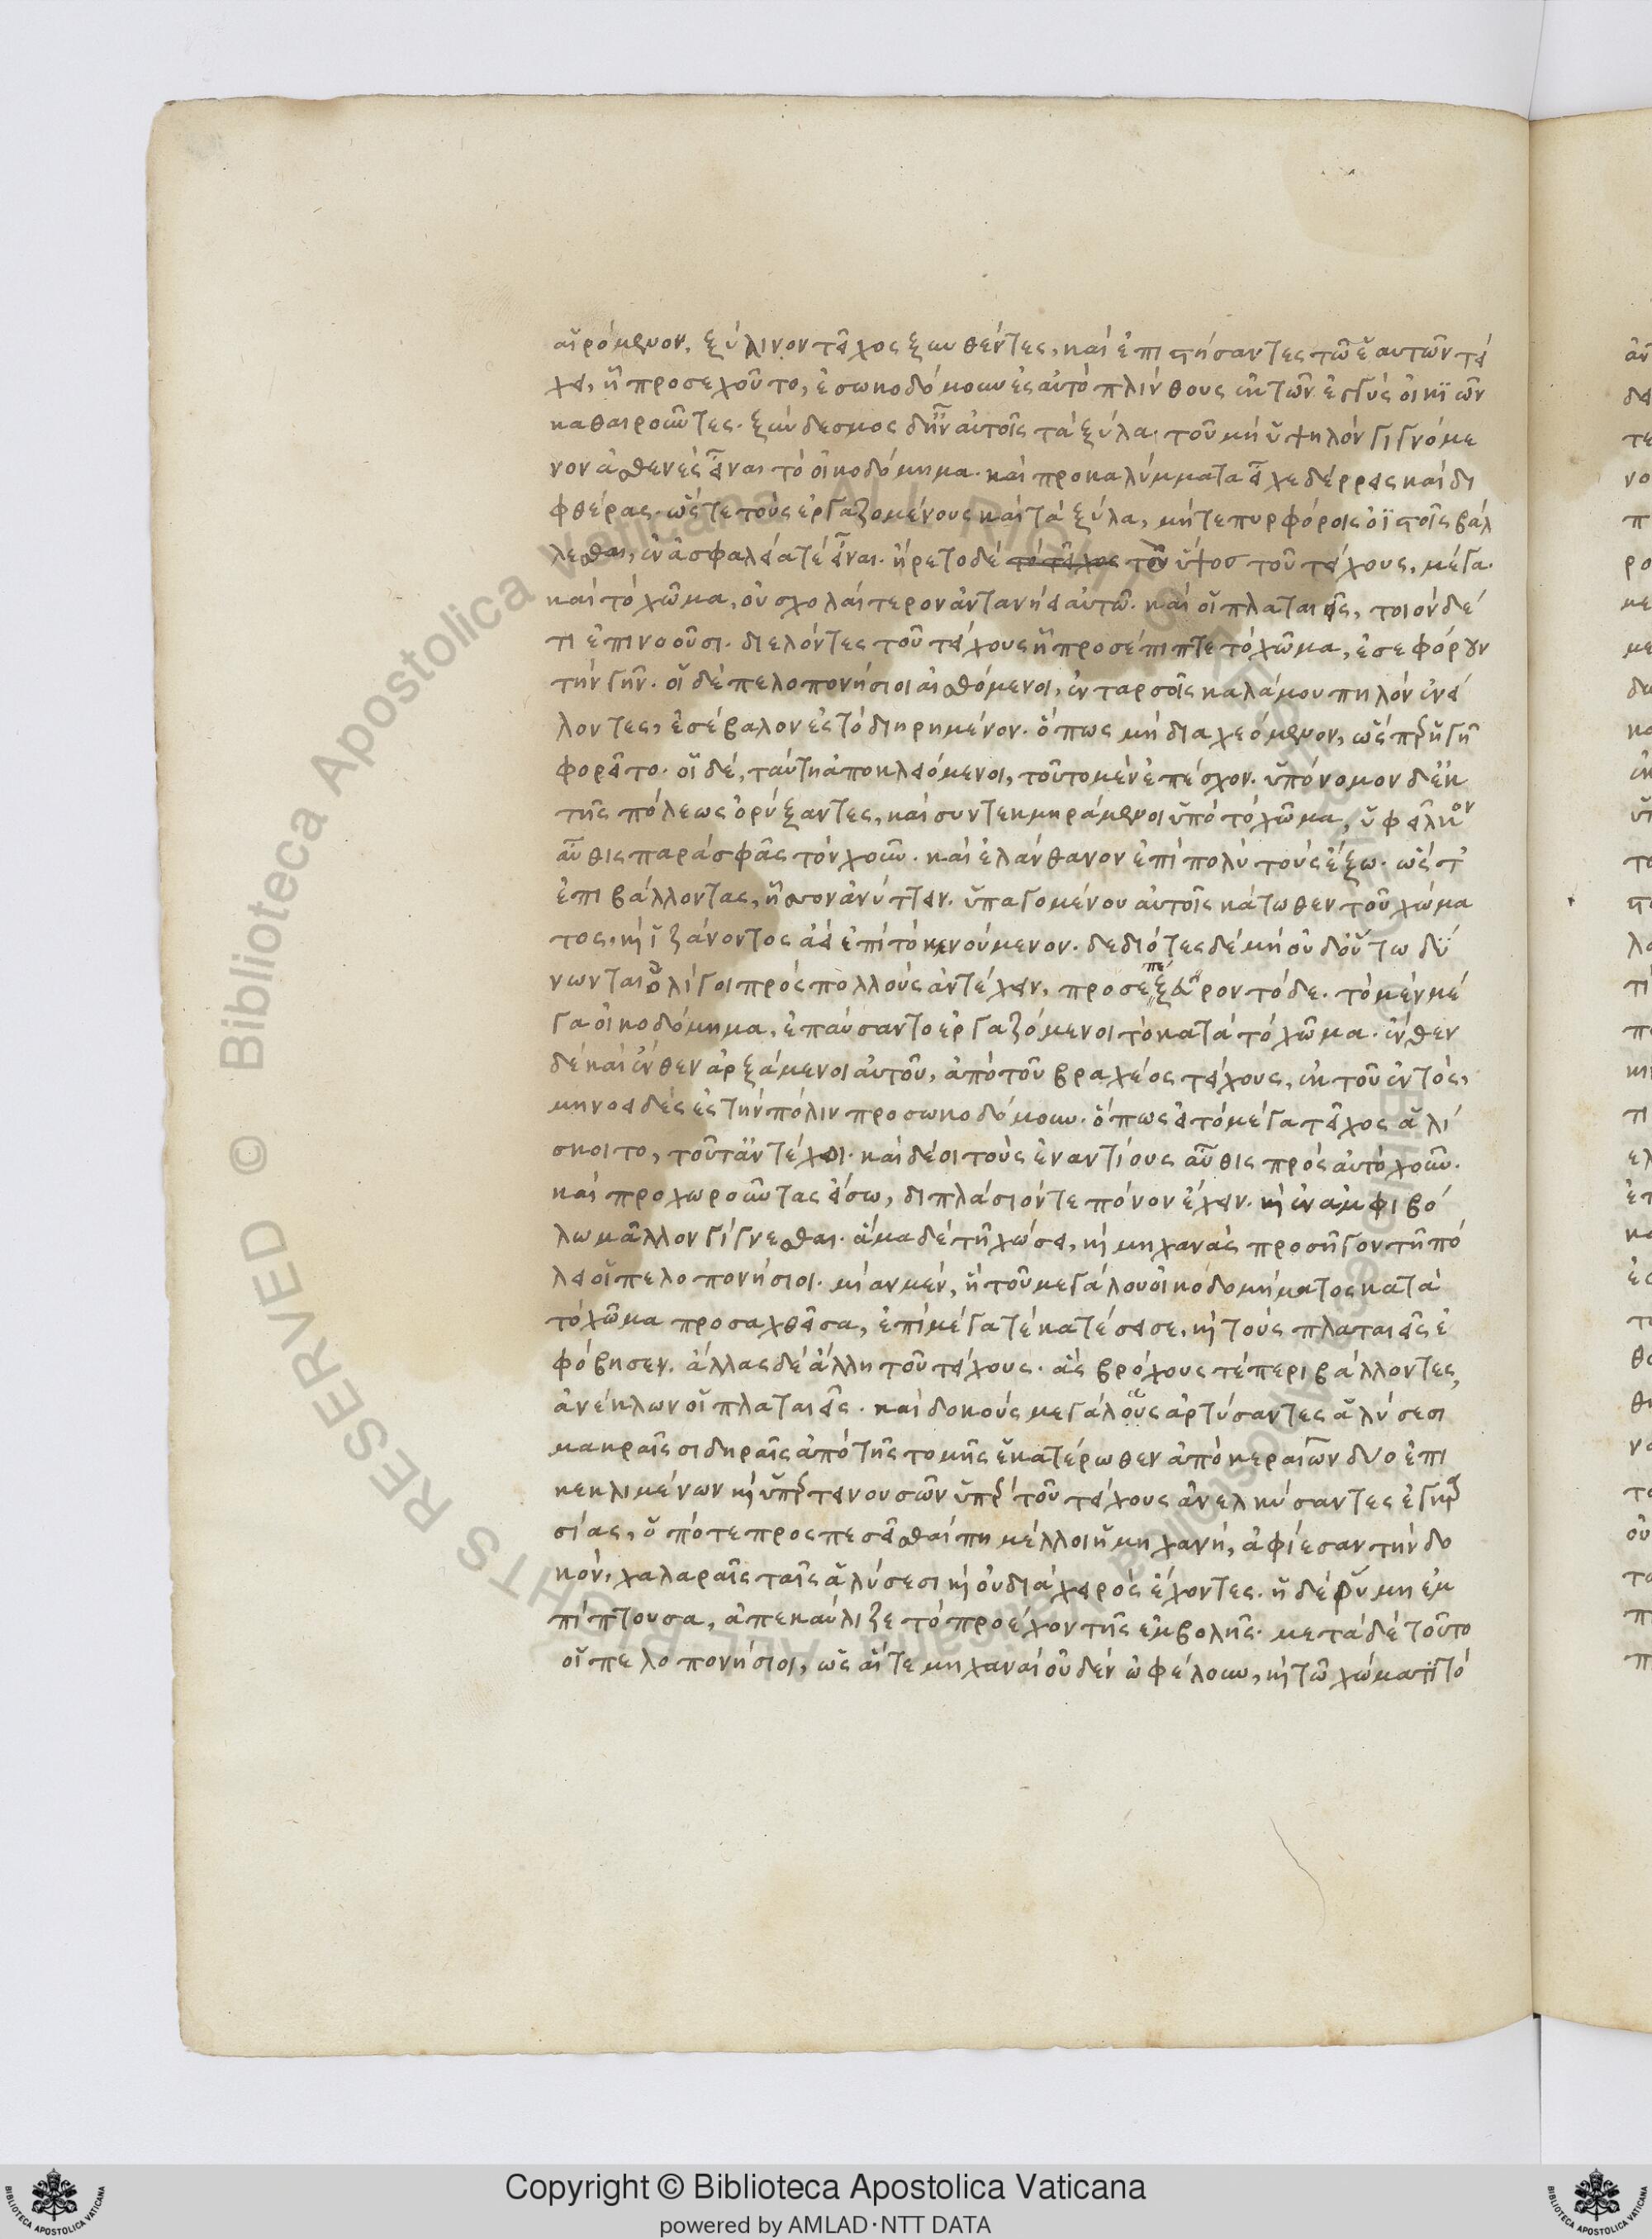 αἰρόμενον, ξύλινον τεῖχος ξυνθέντες, καὶ ἐπιστήσαντες τῶ ἑαυτῶν τεί
χει, ἧ προσεχοῦτο, ἐσωκοδόμουν ἐς αὐτὸ πλίνθους ἐκ τῶν ἐγγὺς οἰκιῶν
καθαιροῦντες. ξύνδεσμος δ' ἦν αὐτοῖς τὰ ξύλα. τοῦ μὴ ὑψηλὸν γιγνόμε
νον ἀσθενὲς εἶναι τὸ οἰκοδόμημα. καὶ προκαλύμματα εἶχε δέρρεις καὶ δι
φθέρας. ὥστε τοὺς ἐργαζομένους καὶ τὰ ξύλα, μήτε πυρφόροις ὀϊστοῖς βάλ
λεσθαι, ἐν ἀσφαλεία τὲ εἶναι. ἤρετο δὲ τὸ τεῖχος τὸ ὕψοσ τοῦ τείχους, μέγα.
καὶ τὸ χῶμα, οὐ σχολαίτερον ἀντανήει αὐτῶ. καὶ οἱ πλαταιεῖς, τοιόνδέ
τι ἐπινοοῦσι. διελόντες τοῦ τείχους ἧ προσέπιπτε τὸ χῶμα, ἐσεφόρουν
τὴν γῆν. οἱ δὲ πελοπονήσιοι αἰσθόμενοι, ἐν ταρσοῖς καλάμου πηλὸν ἐνεί
λοντες, ἐσέβαλον ἐς τὸ διηρημένον. ὅπως μὴ διαχεόμενον, ὥσπερ ἡ γῆ
φορεῖτο. οἱ δὲ, ταύτη ἀποκλειόμενοι, τοῦτο μὲν ἐπέσχον. ὑπόνομον δ' ἐκ
τῆς πόλεως ὀρύξαντες, καὶ συντεκμηράμενοι ὑπὸ τὸ χῶμα, ὑφεῖλκον
αὖθις παρὰ σφᾶς τὸν χοῦν. καὶ ἐλάνθανον ἐπὶ πολὺ τοὺς ἔξω. ὥστ'
ἐπιβάλλοντας, ἧσσον ἀνύττειν. ὑπαγομένου αὐτοῖς κάτωθεν τοῦ χώμα
τος, καὶ ἱζάνοντος ἀεὶ ἐπὶ τὸ κενούμενον. δεδιότες δὲ μὴ οὐδ' οὕτω δύ
νωνται ὀλίγοι πρὸς πολλοὺς ἀντέχειν, προσεπεξεῦρον τόδε. τὸ μὲν μέ
γα οἰκοδόμημα, ἐπαύσαντο ἐργαζόμενοι τὸ κατὰ τὸ χῶμα. ἔνθεν
δὲ καὶ ἔνθεν ἀρξάμενοι αὐτοῦ, ἀπὸ τοῦ βραχέος τείχους, ἐκ τοῦ ἐντός,
μηνοειδὲς ἐς τὴν πόλιν προσωκοδόμουν. ὅπως εἰ τὸ μέγα τεῖχος ἁλί
σκοιτο, τοῦτ' ἀντέχοι. καὶ δέοι τοὺς ἐναντίους αὖθις πρὸς αὐτὸ χοῦν.
καὶ προχωροῦντας εἴσω, διπλάσιόν τε πόνον ἔχειν. καὶ ἐν ἀμφιβό
λω μᾶλλον γίγνεσθαι. ἅμα δὲ τῆ χώσει, καὶ μηχανὰς προσῆγον τῆ πό
λει οἱ πελοπονήσιοι. μίαν μὲν, ἣ τοῦ μεγάλου οἰκοδομήματος κατὰ
τὸ χῶμα προσαχθεῖσα, ἐπὶ μέγα τὲ κατέσεισε, καὶ τοὺς πλαταιεῖς ἐ
φόβησεν. ἄλλας δὲ ἄλλη τοῦ τείχους. ἃς βρόχους τὲ περιβάλλοντες,
ἀνέκλων οἱ πλαταιεῖς. καὶ δοκοὺς μεγάλους ἀρτύσαντες ἁλύσεσι
μακραῖς σιδηραῖς ἀπὸ τῆς τομῆς ἑκατέρωθεν ἀπὸ κεραιῶν δύο ἐπι
κεκλιμένων καὶ ὑπερτεινουσῶν ὑπὲρ τοῦ τείχους ἀνελκύσαντες ἐγκαρ
σίας, ὁπότε προσπεσεῖσθαί πη μέλλοι ἡ μηχανή, ἀφίεσαν τὴν δο
κόν, χαλαραῖς ταῖς ἁλύσεσι καὶ οὐ διὰ χειρὸς ἔχοντες. ἡ δὲ ῥύμη ἐμ
πίπτουσα, ἀπεκαύλιζε τὸ προέχον τῆς ἐμβολῆς. μετὰ δὲ τοῦτο
οἱ πελοπονήσιοι, ὡς αἵ τε μηχαναὶ οὐδὲν ὠφέλουν, καὶ τῶ χώματι τὸ